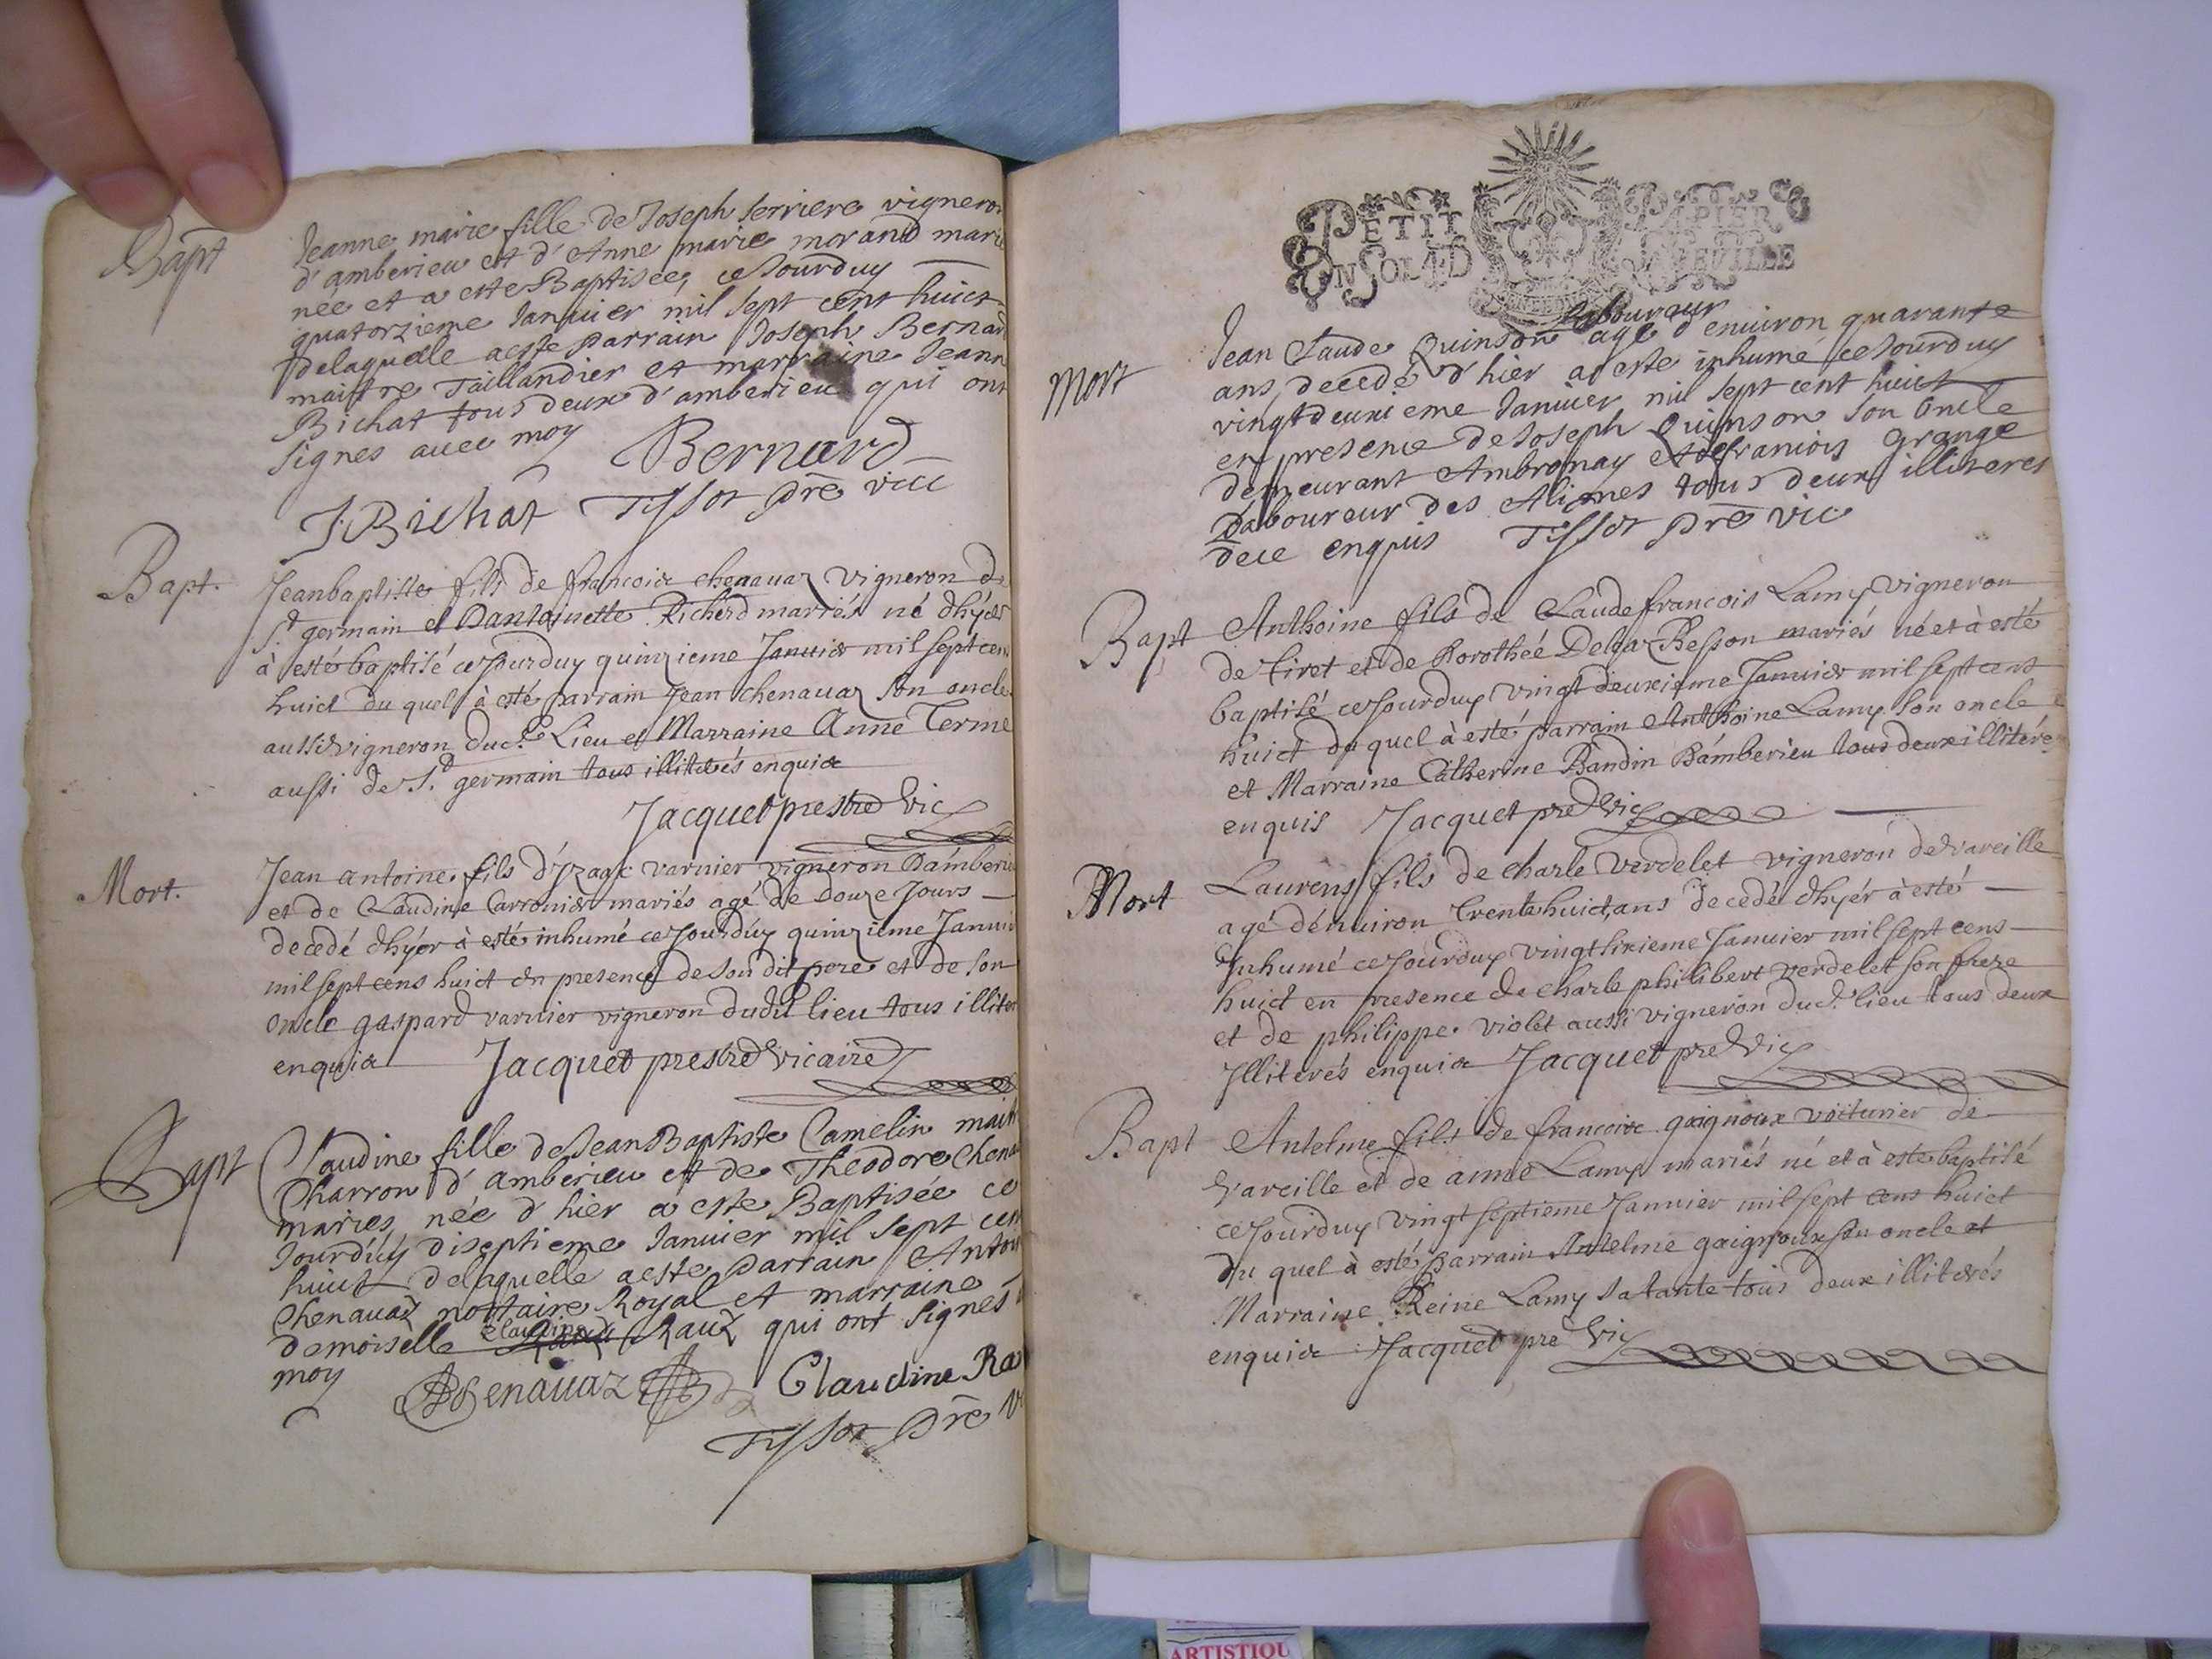 Bapt
Jeanne marie fille de Joseph serriere vigneron
d'amberieu et d'Anne marie morand marié
née et a esté Baptisée, ce Jourduy
quatorzieme Januier mil sept cent huict
delaquelle aesté parrain Joseph Bernard
maistre Taillandier et marraine Jeann
Bichat tous deux d'amberieu qui ont
signes auec moy
Bernard
J Bichat Tissot pre vic
Bapt.
Jeanbaptiste fils de francois chenauaz vigneron de
St germain et Dantoinette Richerd mariés né dhyer
à esté baptisé ceJourduy quinzieme Januier mil sept cen
huict du quel à esté parrain Jean chenauaz son oncle
aussi vigneron dud. Lieu et Marraine Anne Terme
aussi de St germain tous illiterés enquis
Jacquet prestre vic
Mort.
Jean antoine fils d'Yzaac varnier vigneron Damberieu
et de Claudine Carronier mariés agé de Douze Jours
decedé dhyer à esté inhumé ceJourduy quinzieme Januie
mil sept cens huict en presence de son dit pere et de son
oncle gaspard varnier vigneron dudit lieu tous illiter
enquis Jacquet prestre vicaire
Bapt
Claudine fille de Jean Baptiste Camelin maitr
Charron d'amberieu et de Theodore Chena
mariés, née d'hier a esté Baptisée ce
Jourd'uy diseptieme Januier mil sept cen
huict delaquelle aesté parrain Antoi
Chenauaz nottaire Royal et marraine
demoiselle claudine Rauz qui ont signés
moy
Chenauaz Claudine Ra
Tissot pre v
PETIT PAPIER
UN SOL 4 D LA FEUILLE
Mort
Laboureur
Jean Claude Quinson agé d'enuiron quarante
ans, decedé d'hier a esté inhumé ceJourduy
vingtdeuxieme Januier mil sept cent huict
en presence de Joseph Quinson son oncle
demeurant Ambronay et de francois Grange
Laboureur des Alimes tous deux illiteres
dece enquis Tissot pre vic
Bapt
Anthoine fils de Claude francois Lamy vigneron
de Tiret et de Dorothée Dela Besson mariés né et à esté
baptisé ceJourduy vingt deuxieme Januier mil sept cens
huict du quel à esté parrain Anthoine Lamy son oncle
et Marraine Catherine Bandin Damberieu tous deux illiteré
enquis Jacquet pre vic
Mort
Laurens fils de charle verdelet vigneron de vareille
agé d'enuiron Trente huict, ans decedé dhyer à esté
Inhumé ceJourduy vingtsixieme Januier mil sept cens
huict en presence de charle philibert verdelet son frere
et de philippe violet aussi vigneron dud. lieu tous deux
Illiterés enquis Jacquet pre vic
Bapt
Antelme fils de francois gaignoux voiturier de
vareille et de anne Lamy mariés né et à esté baptisé
ceJourduy vingt septieme Januier mil sept cens huict
du quel à esté parrain Antelme gaignoux son oncle et
Marraine Reine Lamy sa tante tous deux illiterés
enquis Jacquet pre vic
ARTISTIQU